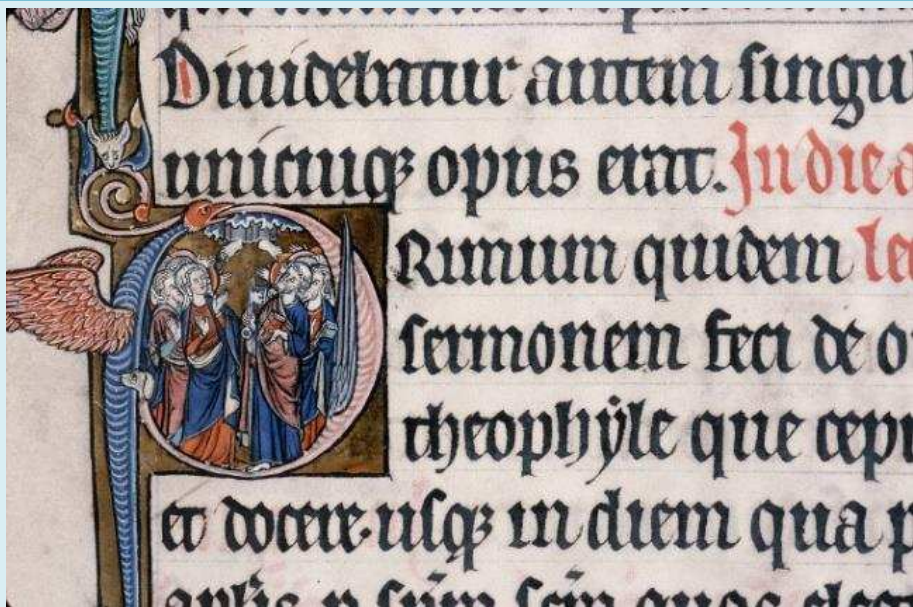 Diuidebatur autem singu
unicuiqꝫ opus erat. In die a
Rimum quidem le
sermonem feci de o
theophyle que cepi
et docere usqꝫ in diem qua p